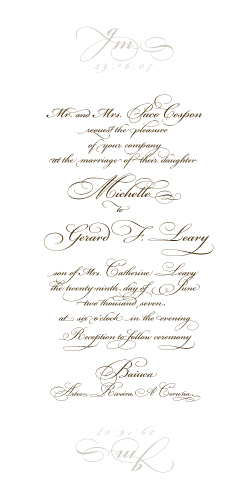 gm
29.6.07
Mr. and Mrs. Paco Cospon
request the pleasure
of your company
at the marriage of their daughter
Michelle
to
Gerard F. Leary
son of Mrs. Catherine Leavy
the twenty-ninth day of June
two thousand seven
at six o'clock in the evening
Reception to follow ceremony
Baiuca
Riveira, A Coruña
29.6.07
gm